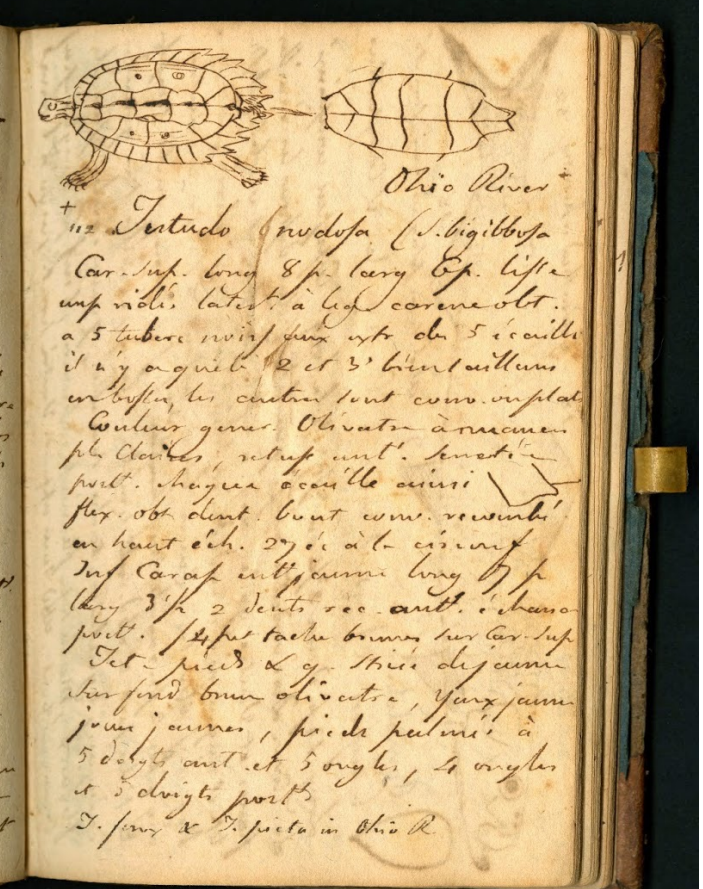 Ohio River
112 Testudo nodosa (T. bigibbosa
Car. sup. long 8 p. larg 6 p. lisse
carene obt.
a 5 tuberc noirs aux extr des 5 écaille
il n'y a que le 2 et 3e bien saillans
en bosse, les autres sont conv. ou plat
Couleur gener. Olivatre à nuances
pl. Claires, retuse antr.
postr. chaque écaille ainsi
flex. obt dent. bout conv. recourbé
en haut éch. 27 éc à la circonf
Inf Carap jaune long 7 p
larg 3 p 2 dents ant.
postr. 4 pet tache brunes sur Car. sup
Tete pieds & q. striée de jaune
sur fond brun olivatre, yeux jaune
jaunes, pieds palmés à
5 doigts ant et 5 ongles, 4 ongles
et 5 doigts postr
T. ferox & T. picta in Ohio R.